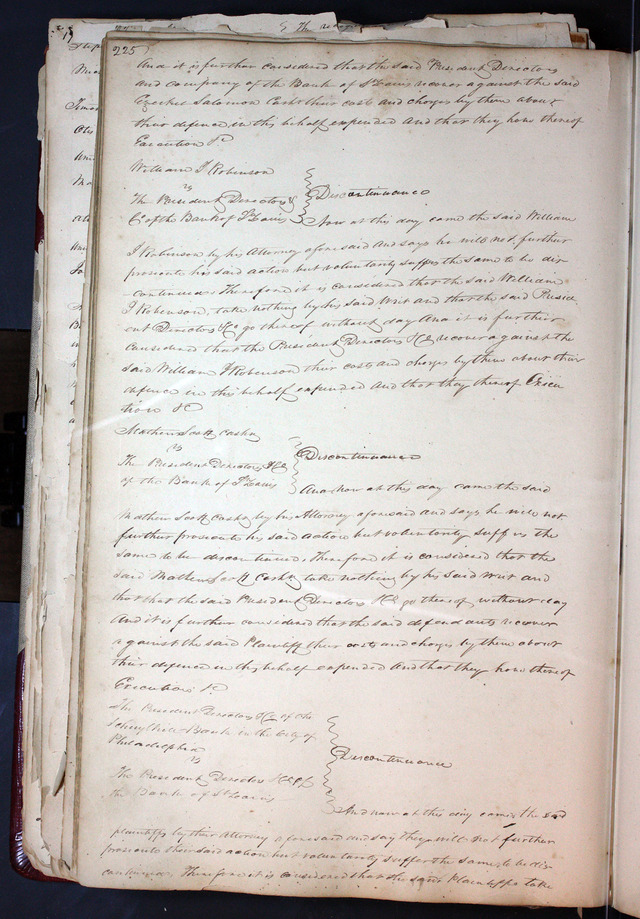 225
And it is further considered that the said President Directors
and company of the Bank of St Louis recover against the said
Solomon Cash their costs and charges by them about
their defence in this behalf expended And that they have thereof
Execution &c
William J Robinson
vs
The President Directors &
Co of the Bank of St Louis
Discontinuance
Now at this day came the said William
J Robinson by his Attorney aforesaid And says he will not further
prosecute his said action but voluntarily suffers the same to be dis
continued. Therefore it is considered that the said William
J Robinson, take nothing by his said Writ and that the said Presid
ent Directors &Co go thereof without day And it is further
considered that the President Directors &Co recover against the
said William J Robinson their costs and charges by them about their
defence in this behalf expended And that they thereof Execu
tion &C
Mathew Scott
vs
The President Directors, &Co
of the Bank of St Louis
Discontinuance
And now at this day came the said
Mathew Scott by his Attorney aforesaid and says he will not
further prosecute his said action but voluntarily suffers the
same to be discontinued, Therefore it is considered that the
said Mathew Scott take nothing by his said writ and
that that the said President Directors &Co go thereof without day
And it is further considered that the said defendants recover
against the said Plaintiff their costs and charges by them about
their defence in this behalf expended And that they have thereof
Execution &C
The President Directors &Co of the
Schuylkill Bank in the City of
Philadelphia
vs
The President, Directors &Co of
the Bank of St Louis
Discontinuance
And now at this day came the said
plaintiffs by their Attorney aforesaid and say they will not further
prosecute their said action but voluntarily suffer the same, to be dis
continued, Therefore it is considered that the said Plaintiffs take